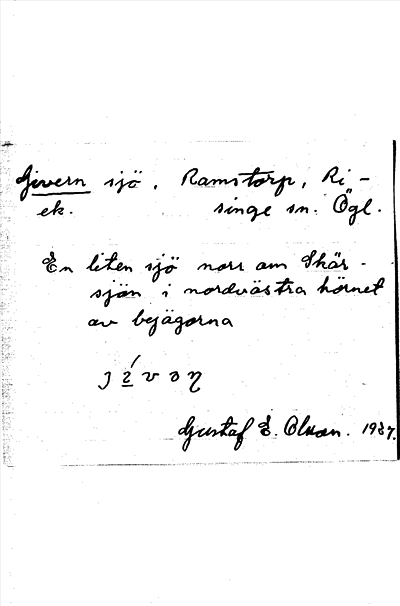 Givern sjö. Ramstorp, Ri-
ek. singe sn. Ögl.
En liten sjö norr om Skär-
sjön i nordvästra hörnet
av bejägorna
Gustaf E. Olsson. 1937.